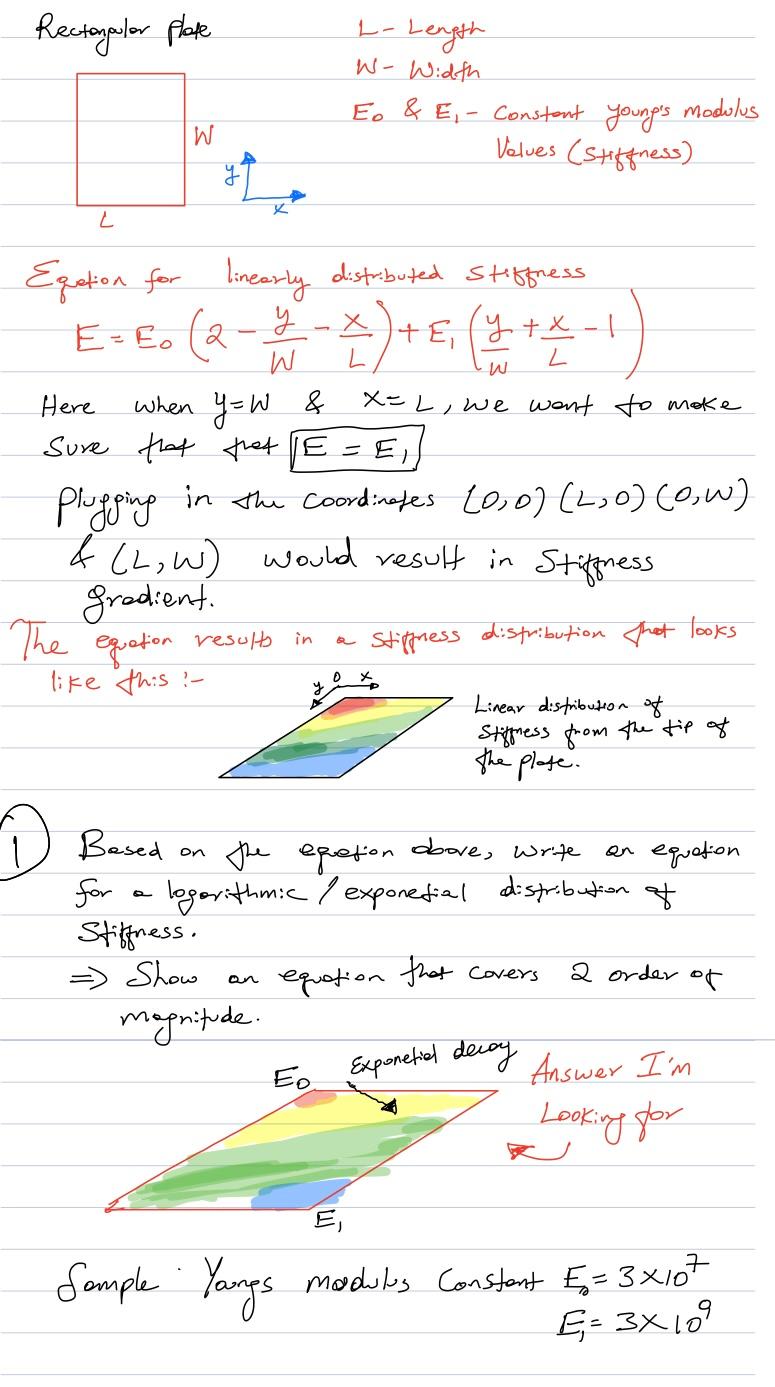 Rectangular plate
L - Length
W - Width
E₀ & E₁ - Constant young's modulus
Values (stiffness)
W
y
x
L
Equation for linearly distributed stiffness
E = E₀ (2 - y/W - x/L) + E₁ (y/W + x/L - 1)
Here when y=W & x=L, we want to make
Sure that that E = E₁
Plugging in the coordinates (0,0) (L,0) (0,W)
& (L,W) would result in stiffness
gradient.
The equation results in a stiffness distribution that looks
like this :-
y 0 x
Linear distribution of
stiffness from the tip of
the plate.
1
Based on the equation above, write an equation
for a logarithmic / exponetial distribution of
stiffness.
=> Show an equation that covers 2 order of
magnitude.
E₀
Exponetial decay
Answer I'm
Looking for
E₁
Sample Youngs modulus constant E₀ = 3×10⁷
E₁ = 3×10⁹